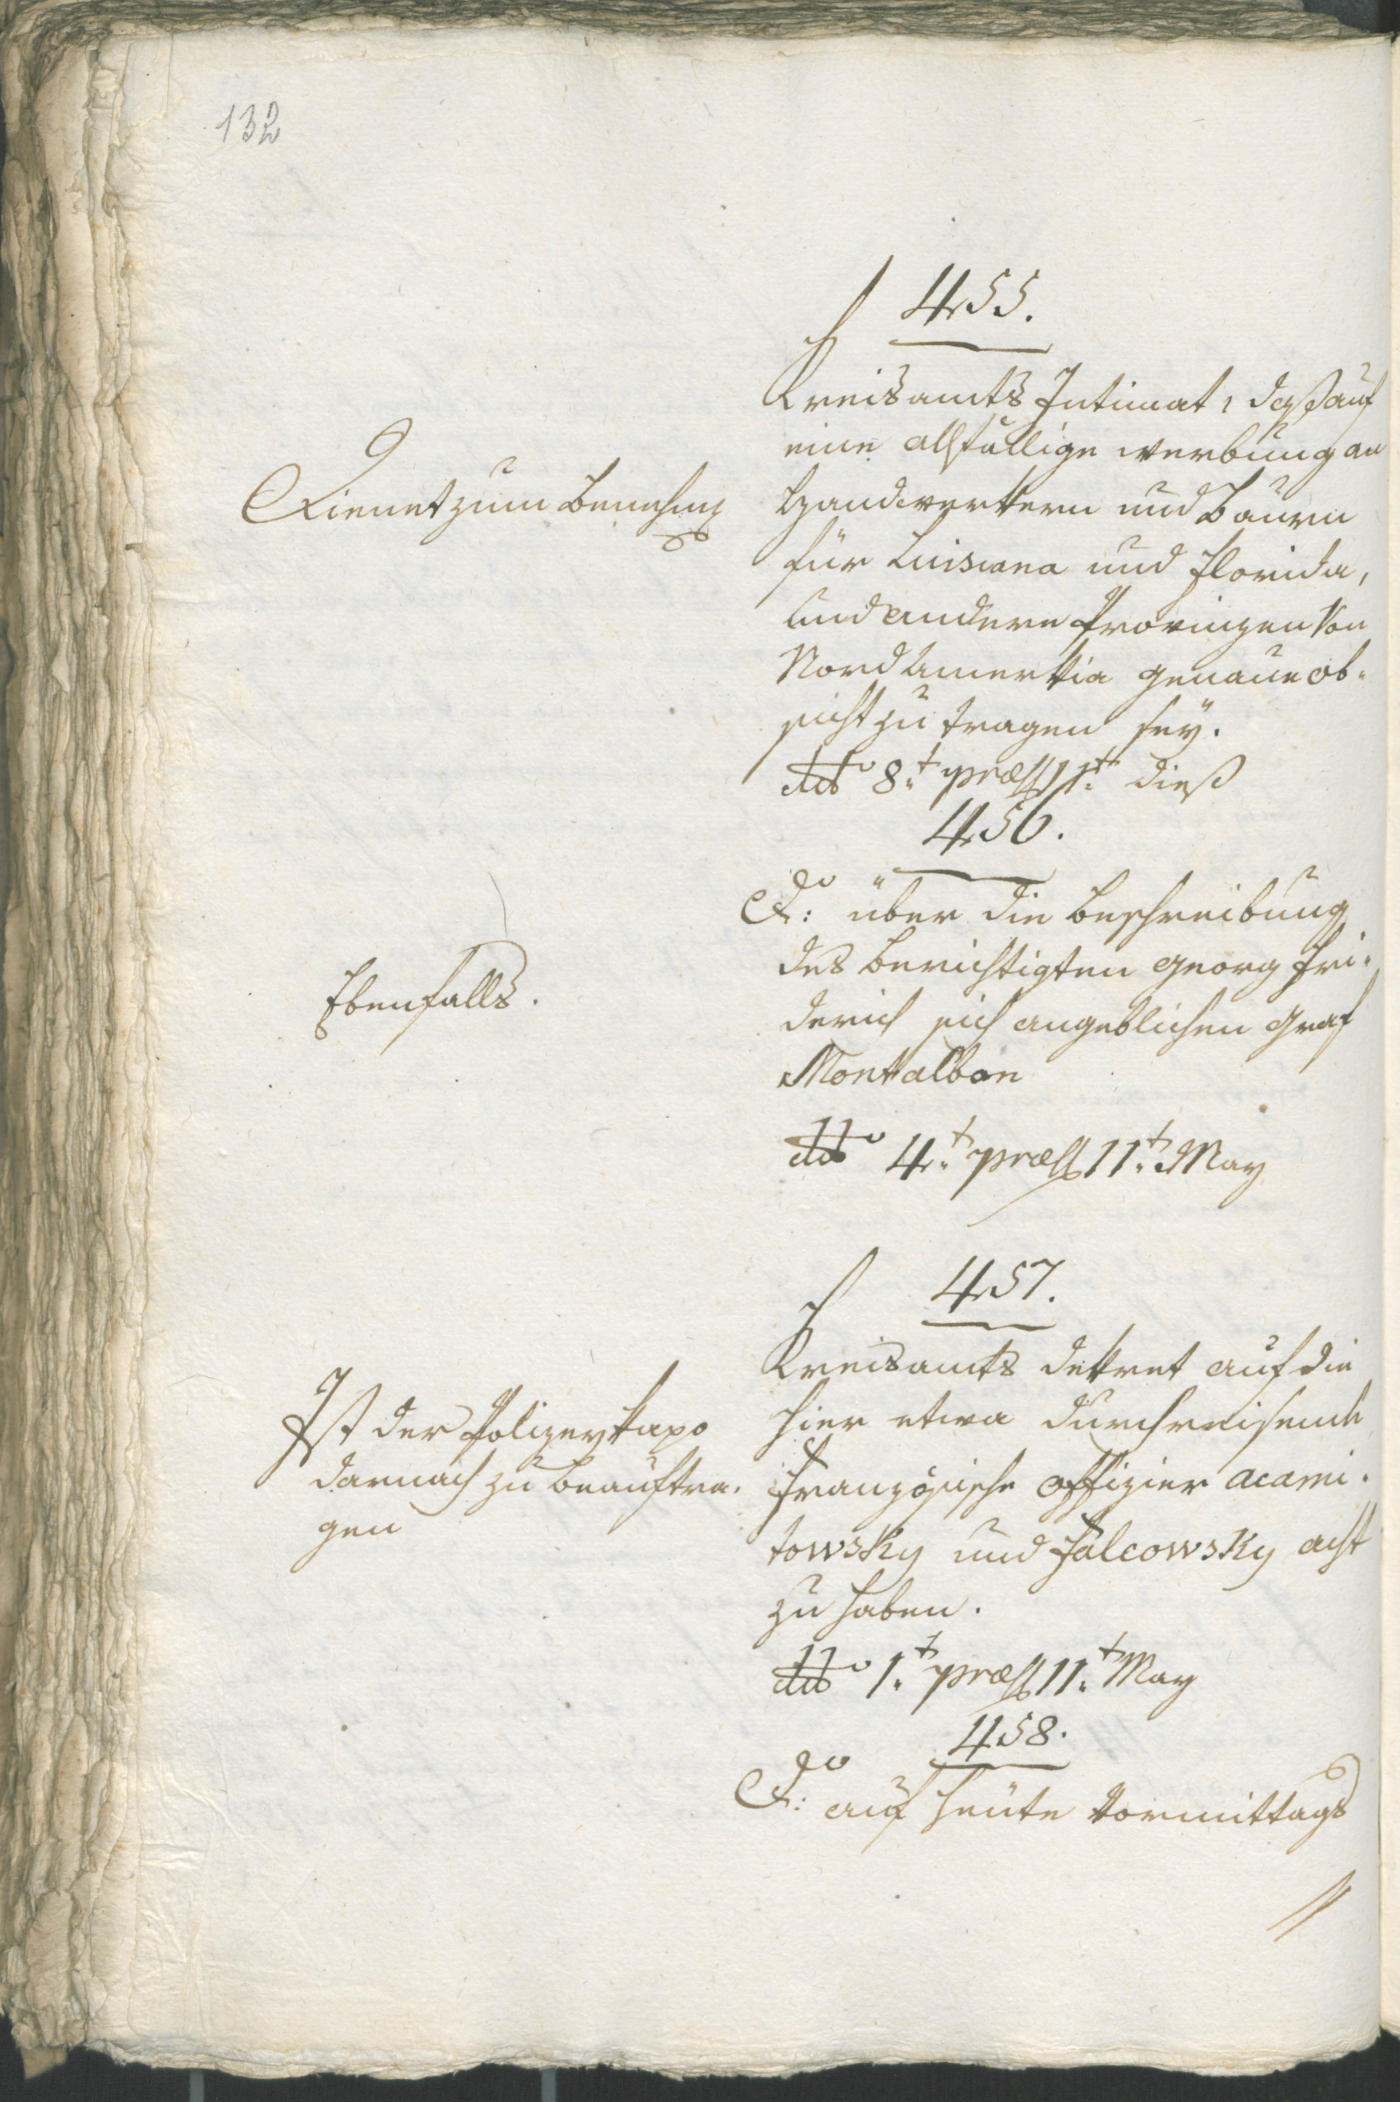 132
455.
Kreisamts Intimat, daß auf
eine allfällige werbung an
Handwerkern und Bauern
für Luisiana und Florida,
und andere Provinzen von
Nord Amerkia genaue ob-
sicht zu tragen sey.
ddo 8t. præs 11t. dieß
Dienet zum benehmen
456.
do: über die beschreibung
des berichtigten Georg Fri-
derich sich angeblichen Graf
Montalban
ddo 4t. præs 11t. May
Ebenfalls.
457.
Kreisamts dekret auf die
hier etwa durchreisende
französische offizier Acami-
towsky und Falcowsky acht
zu haben.
ddo 1t. præs 11t. May
Ist der Polizeykapo
darnach zu beauftra-
gen
458.
do: auf heute vormittags